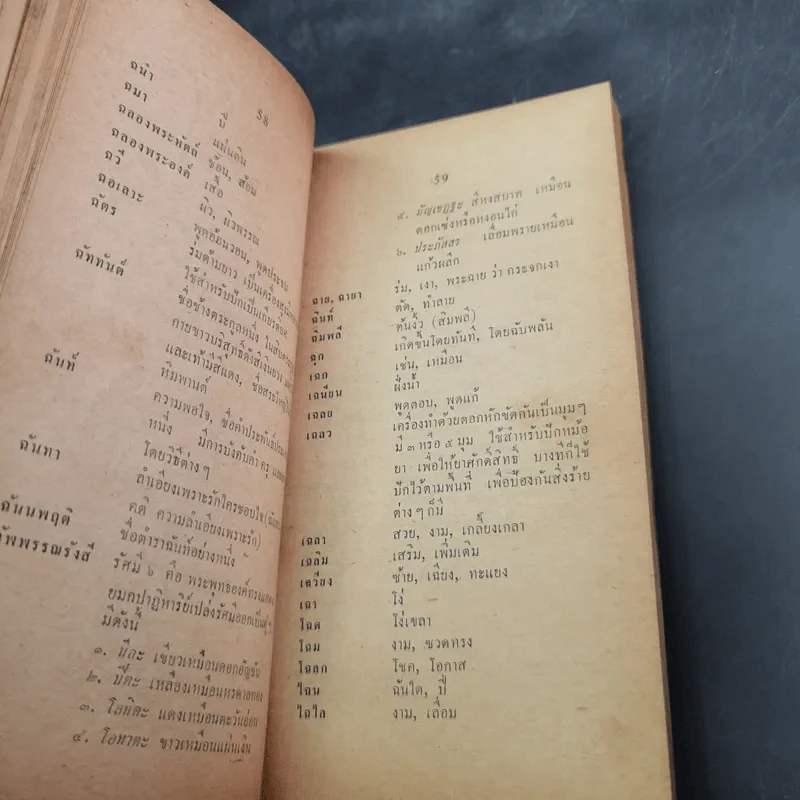 58
ฉนำ ปี
ฉมา แผ่นดิน
ฉลองพระหัตถ์ ช้อน, ส้อม
ฉลองพระองค์ เสื้อ
ฉวี ผิว, ผิวพรรณ
ฉอเลาะ พูดอ้อนวอน, พูดประจบ
ฉัตร ร่มด้ามยาว เป็นเครื่องสูง
ใช้สำหรับปักเป็นเกียรติยศ
ฉัททันต์ ชื่อช้างตระกูลหนึ่ง ในสิบตระกูล
กายขาวบริสุทธิ์ดังสีเงินยวง
และเท้ามีสีแดง, ชื่อสระใหญ่ใน
หิมพานต์
ฉันท์ ความพอใจ, ชื่อคำประพันธ์ประเภท
หนึ่ง มีการบังคับคำ ครุ
โดยวิธีต่าง ๆ
ฉันทา ลำเอียงเพราะรักใคร่ชอบใจ
คติ ความลำเอียงเพราะรัก)
ฉันนพฤติ ชื่อตำราฉันท์อย่างหนึ่ง
ัพพรรณรังสี รัศมี ๖ คือ พระพุทธองค์ทรงแสดง
ยมกปาฏิหาริย์เปล่งรัศมีออกเป็นคู่ๆ
มีดังนี้
๑. นีละ เขียวเหมือนดอกอัญชัน
๒. ปีตะ เหลืองเหมือนหรดาลทอง
๓. โลหิตะ แดงเหมือนตะวันอ่อน
๔. โอทาตะ ขาวเหมือนแผ่นเงิน
59
๕. มัญเชฏฐะ สีหงสบาท เหมือน
ดอกเซ่งหรือหงอนไก่
๖. ประภัสสร เลื่อมพรายเหมือน
แก้วผลึก
ฉาย, ฉายา ร่ม, เงา, พระฉาย ว่า กระจกเงา
ฉินท์ ตัด, ทำลาย
ฉิมพลี ต้นงิ้ว (สิมพลี)
ฉุก เกิดขึ้นโดยทันที, โดยฉับพลัน
เฉก เช่น, เหมือน
เฉนียน ฝั่งน้ำ
เฉลย พูดตอบ, พูดแก้
เฉลว เครื่องทำด้วยตอกหักขัดกันเป็นมุมๆ
มี ๓ หรือ ๕ มุม ใช้สำหรับปักหม้อ
ยา เพื่อให้ยาศักดิ์สิทธิ์ บางทีก็ใช้
ปักไว้ตามพื้นที่ เพื่อป้องกันสิ่งร้าย
ต่าง ๆ ก็มี
เฉลา สวย, งาม, เกลี้ยงเกลา
เฉลิม เสริม, เพิ่มเติม
เฉวียง ซ้าย, เฉียง, ทะแยง
เฉา โง่
โฉด โง่เขลา
โฉม งาม, ทรวดทรง
โฉลก โชค, โอกาส
ไฉน ฉันใด, ปี่
ไฉไล งาม, เลื่อม